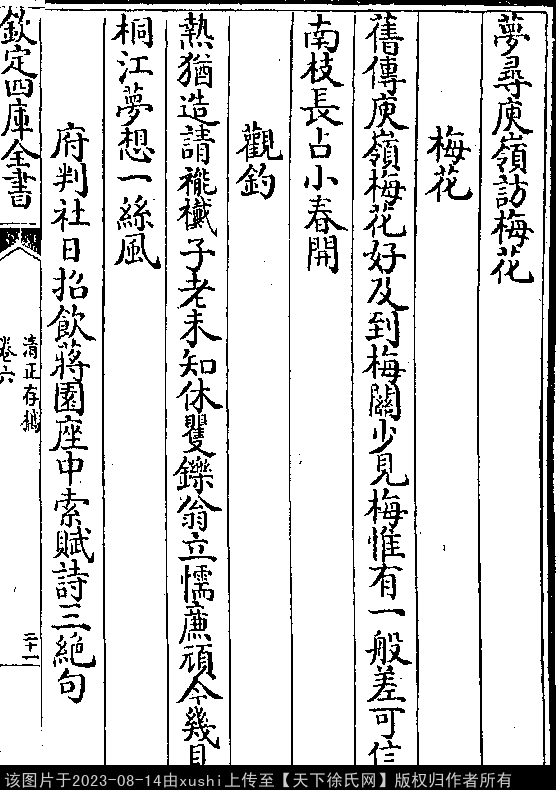 夢尋庾嶺訪梅花
梅花
舊傳庾嶺梅花好及到梅關少見梅惟有一般差可信
南枝長占小春開
觀釣
熱猶造請襹襶子老未知休矍鑠翁立懦廉頑今幾見
桐江夢想一絲風
府判社日招飲蔣園座中索賦詩三絕句
欽定四庫全書
清正存稿
卷六
二十一
该图片于2023-08-14由xushi上传至【天下徐氏网】版权归作者所有